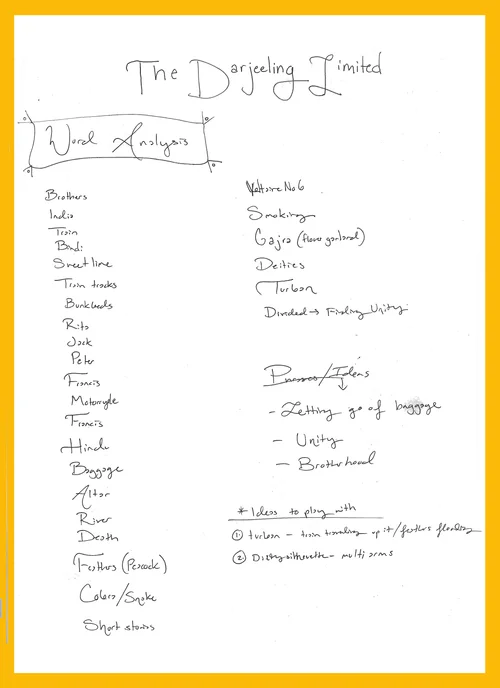 The Darjeeling Limited
Word Analysis
Brothers
India
Train
Bindi
Sweet lime
Train tracks
Bunkbeds
Rita
Jack
Peter
Francis
Motorcycle
Francis
Hindu
Baggage
Altar
River
Death
Feathers (Peacock)
Colors/Snake
Short stories
Voltaire No 6
Smoking
Gajra (flower garland)
Deities
Turban
Divided → Finding Unity
/Ideas
- Letting go of baggage
- Unity
- Brotherhood
* Ideas to play with
① turban - train traveling up it/feathers floating
② Diety silhouette - multi arms